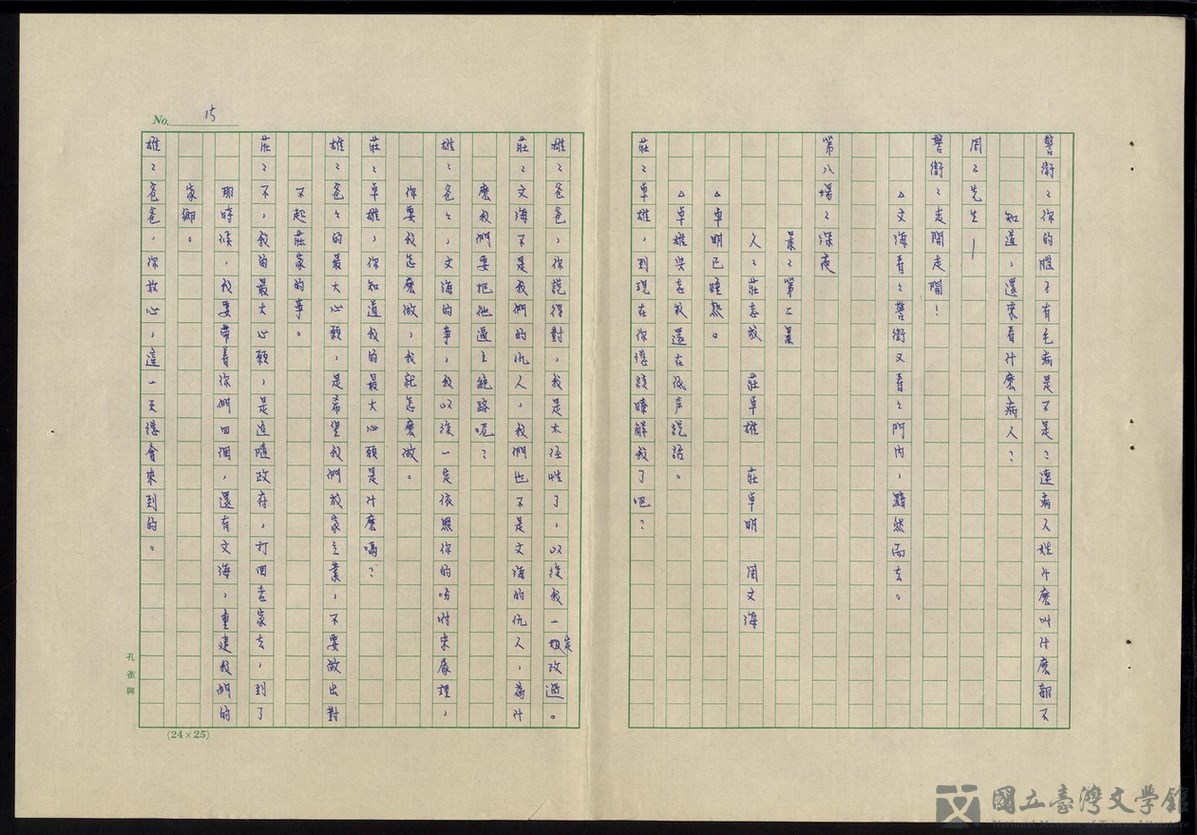 警衛：你的腦子有毛病是不是？連病人姓什麼叫什麼都不
知道，還來看什麼病人？
周：先生—
警衛：走開走開！
△文海看看警衛又看看門內，黯然而去。
第八場：深夜
景：第二景
人：莊志放　莊卓雄　莊卓明　周文海
△卓明已睡熟。
△卓雄與志放還在低声說話。
莊：卓雄，到現在你應該瞭解我了吧？
No. 15
雄：爸爸，你說得對，我是太任性了，以後我一定改過。
莊：文海不是我們的仇人，我們也不是文海的仇人，為什
麼我們要把他逼上絕路呢？
雄：爸爸，文海的事，我以後一定依照你的吩咐來處理，
你要我怎麼做，我就怎麼做。
莊：卓雄，你知道我的最大心願是什麼嗎？
雄：爸爸的最大心願，是希望我們放家立業，不要做出對
不起莊家的事。
莊：不，我的最大心願，是追隨政府，打回老家去，到了
那時候，我要帶着你們回洄，還有文海，重建我們的
家鄉。
雄：爸爸，你放心，這一天總會來到的。
孔雀牌
(24×25)
國立臺灣文學館
National Museum of Taiwan Literature